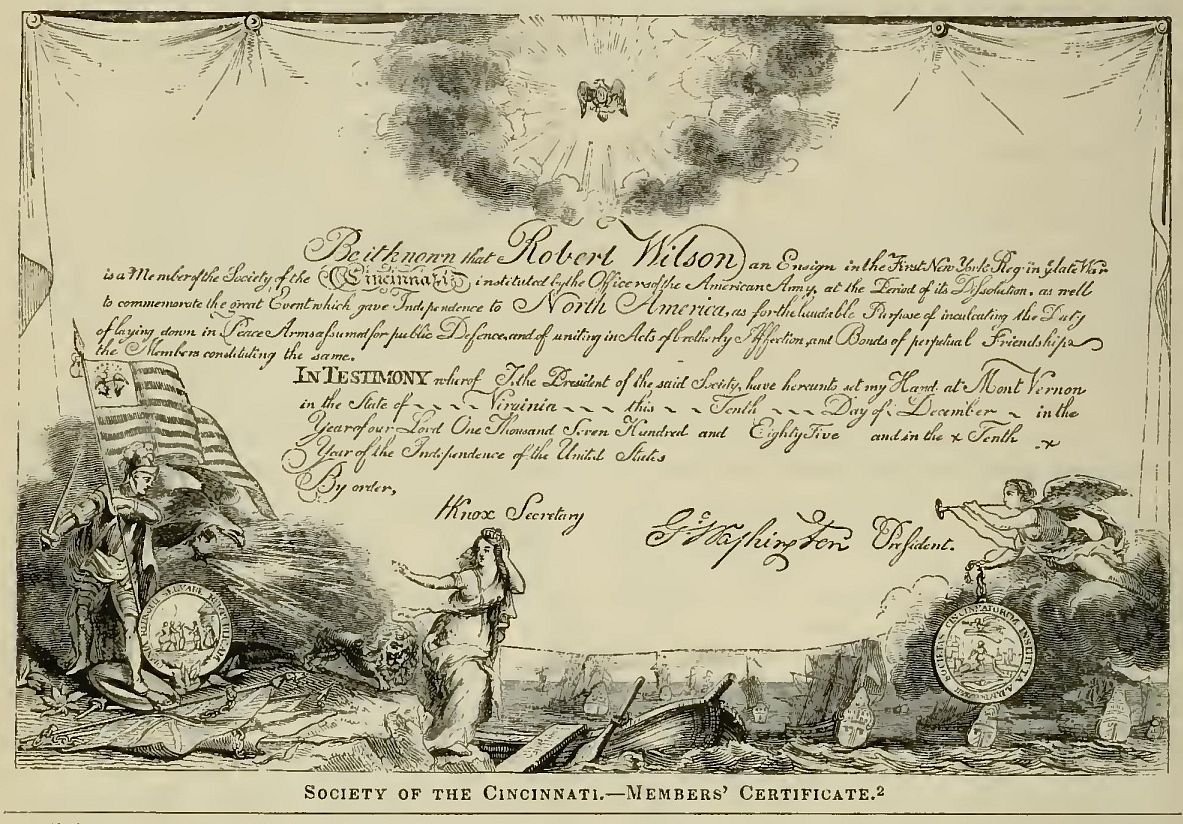 Be it known that Robert Wilson, an Ensign in the First New York Reg. in ye late War
is a Member of the Society of the Cincinnati; instituted by the Officers of the American Army, at the Period of its Dissolution, as well
to commemorate the great Event which gave Independence to North America, as for the laudable Purpose of inculcating the Duty
of laying down in Peace Arms assumed for public Defence, and of uniting in Acts of brotherly Affection, and Bonds of perpetual Friendship
the Members constituting the same.
IN TESTIMONY wherof I, the President of the said Society, have hereunto set my Hand at Mont Vernon
in the State of Virginia this Tenth Day of December in the
Year of our Lord One Thousand Seven Hundred and Eighty Five and in the Tenth
Year of the Independence of the United States
By order,
HKnox Secretary
Go Washington President.
SOCIETAS CINCINNATORUM INSTITUTA A.D.
SOCIETY OF THE CINCINNATI.—MEMBERS' CERTIFICATE.2